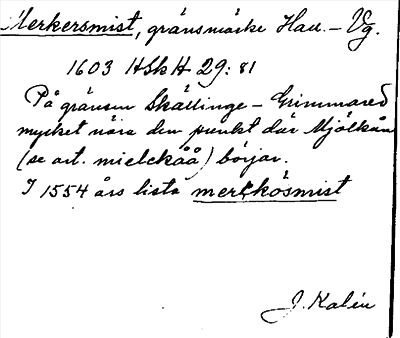 Merkersmist, gränsmärke Hall. – Vg.
1603 HSkH 29: 81
På gränsen Skällinge – Grimmared
mycket nära den punkt där Mjölkån
(se art. mielckåå) börjar.
I 1554 års lista merkkösmist
J. Kalén